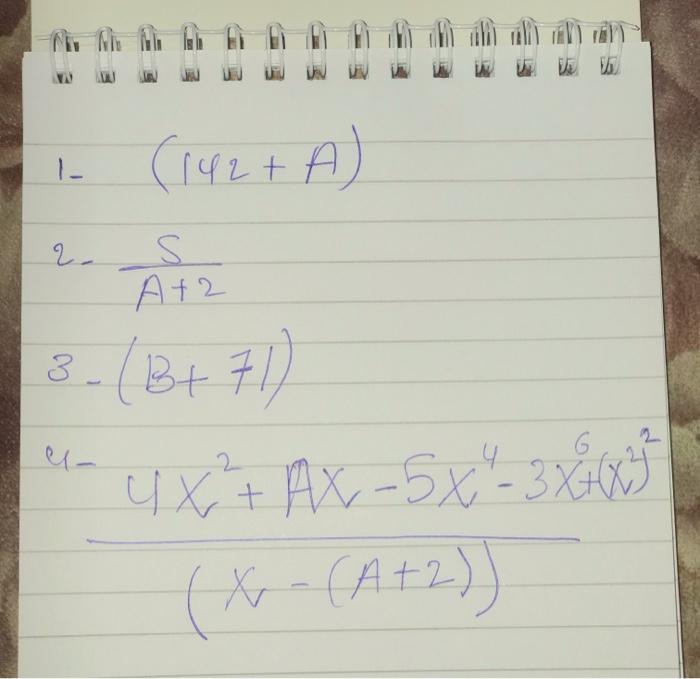 1- (142 + A)
2- S / A+2
3- (B+ 71)
4- 4x² + Ax - 5x⁴ - 3x⁶ + (x²)²
(x - (A+2))